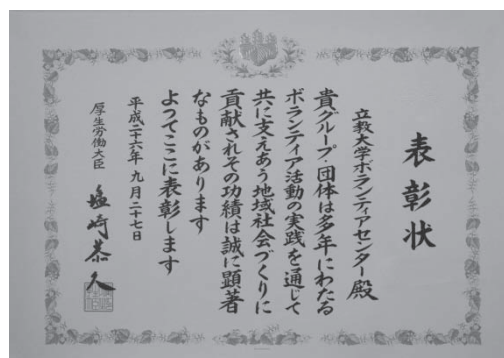 表彰状
立教大学ボランティアセンター殿
貴グループ・団体は多年にわたる
ボランティア活動の実践を通じて
共に支えあう地域社会づくりに
貢献されその功績は誠に顕著
なものがあります
よってここに表彰します
平成二十六年九月二十七日
厚生労働大臣 塩崎恭久